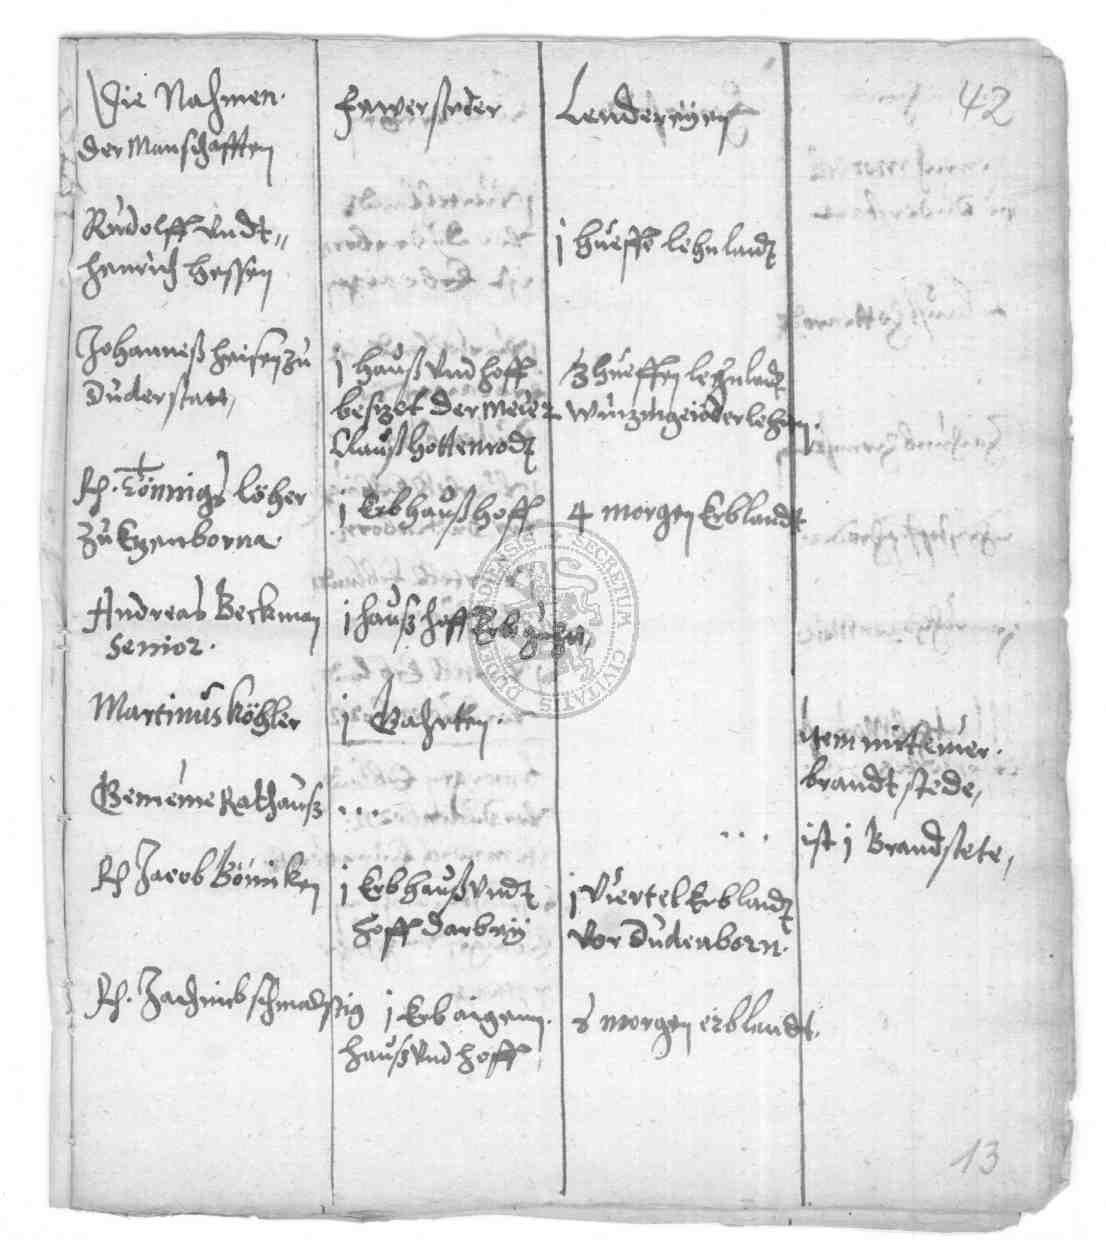 Die Nahmen
der Manschafften
Fewersteder
Lendereyen
42
Rudolff Vndt
Henrich Hessen
j Hueffe lehnlandt
Johanneß Heisen zu
Duderstatt,
j Hauß Vnd Hoff
besizet der Meier
Clauß Hottenrodt
3 Hueffen lehnlandt
Wintzingeröder lehen.
Rh. Tönnigs löher
zu Etzenborna
j Erbhauß Hoff
4 morgen Erblandt
Andreas Beckman
Senior.
j Hauß Hoff Erb
Martinus Köhler
j Gahrten.
item mit einer
brandtstede,
Gemeine Rathauß
...
...
ist j Brandstete,
Rh Jacob Bönniken
j Erbhauß Vndt
Hoff darbey
j Viertel Erblandt
Vor Dudenborn.
Rh. Schmalstig
j Erb aigenn
Hauß Vnd Hoff
morgen erblandt,
13
SECRETUM CIVITATIS DUDERSTADIENSIS